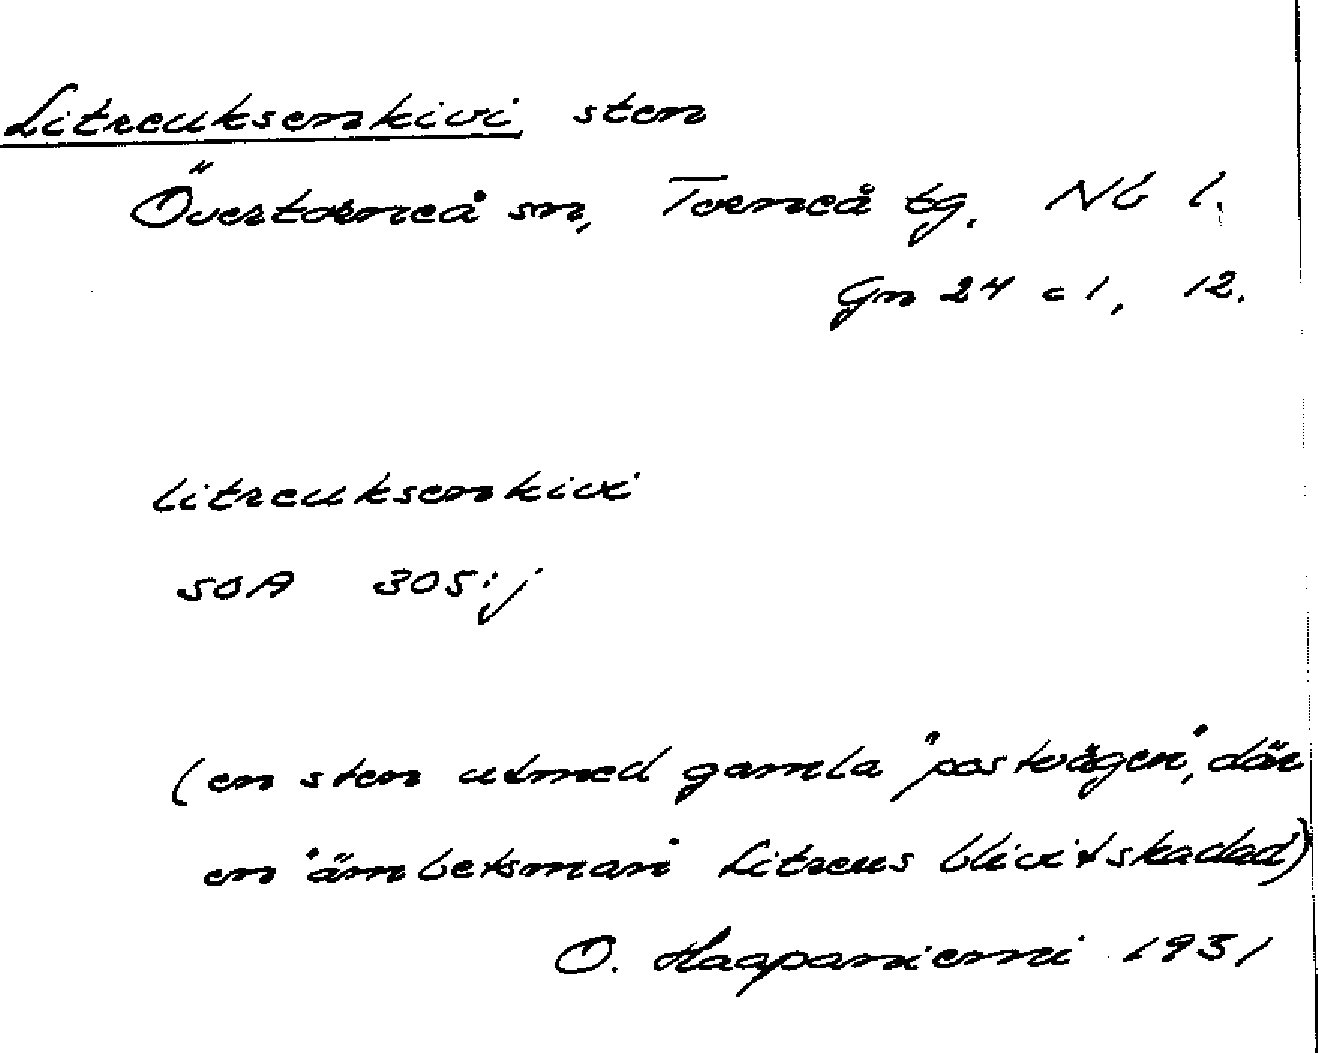 Litreuksenkivi sten
Övertorneå sn, Torneå tg. Nb l.
Gn 24 c 1, 12.
litreuksenkivi
SOA 305:j
(en sten utmed gamla "postvägen", där
en "ämbetsman" Litreus blivit skadad)
O. Haapaniemi 1931